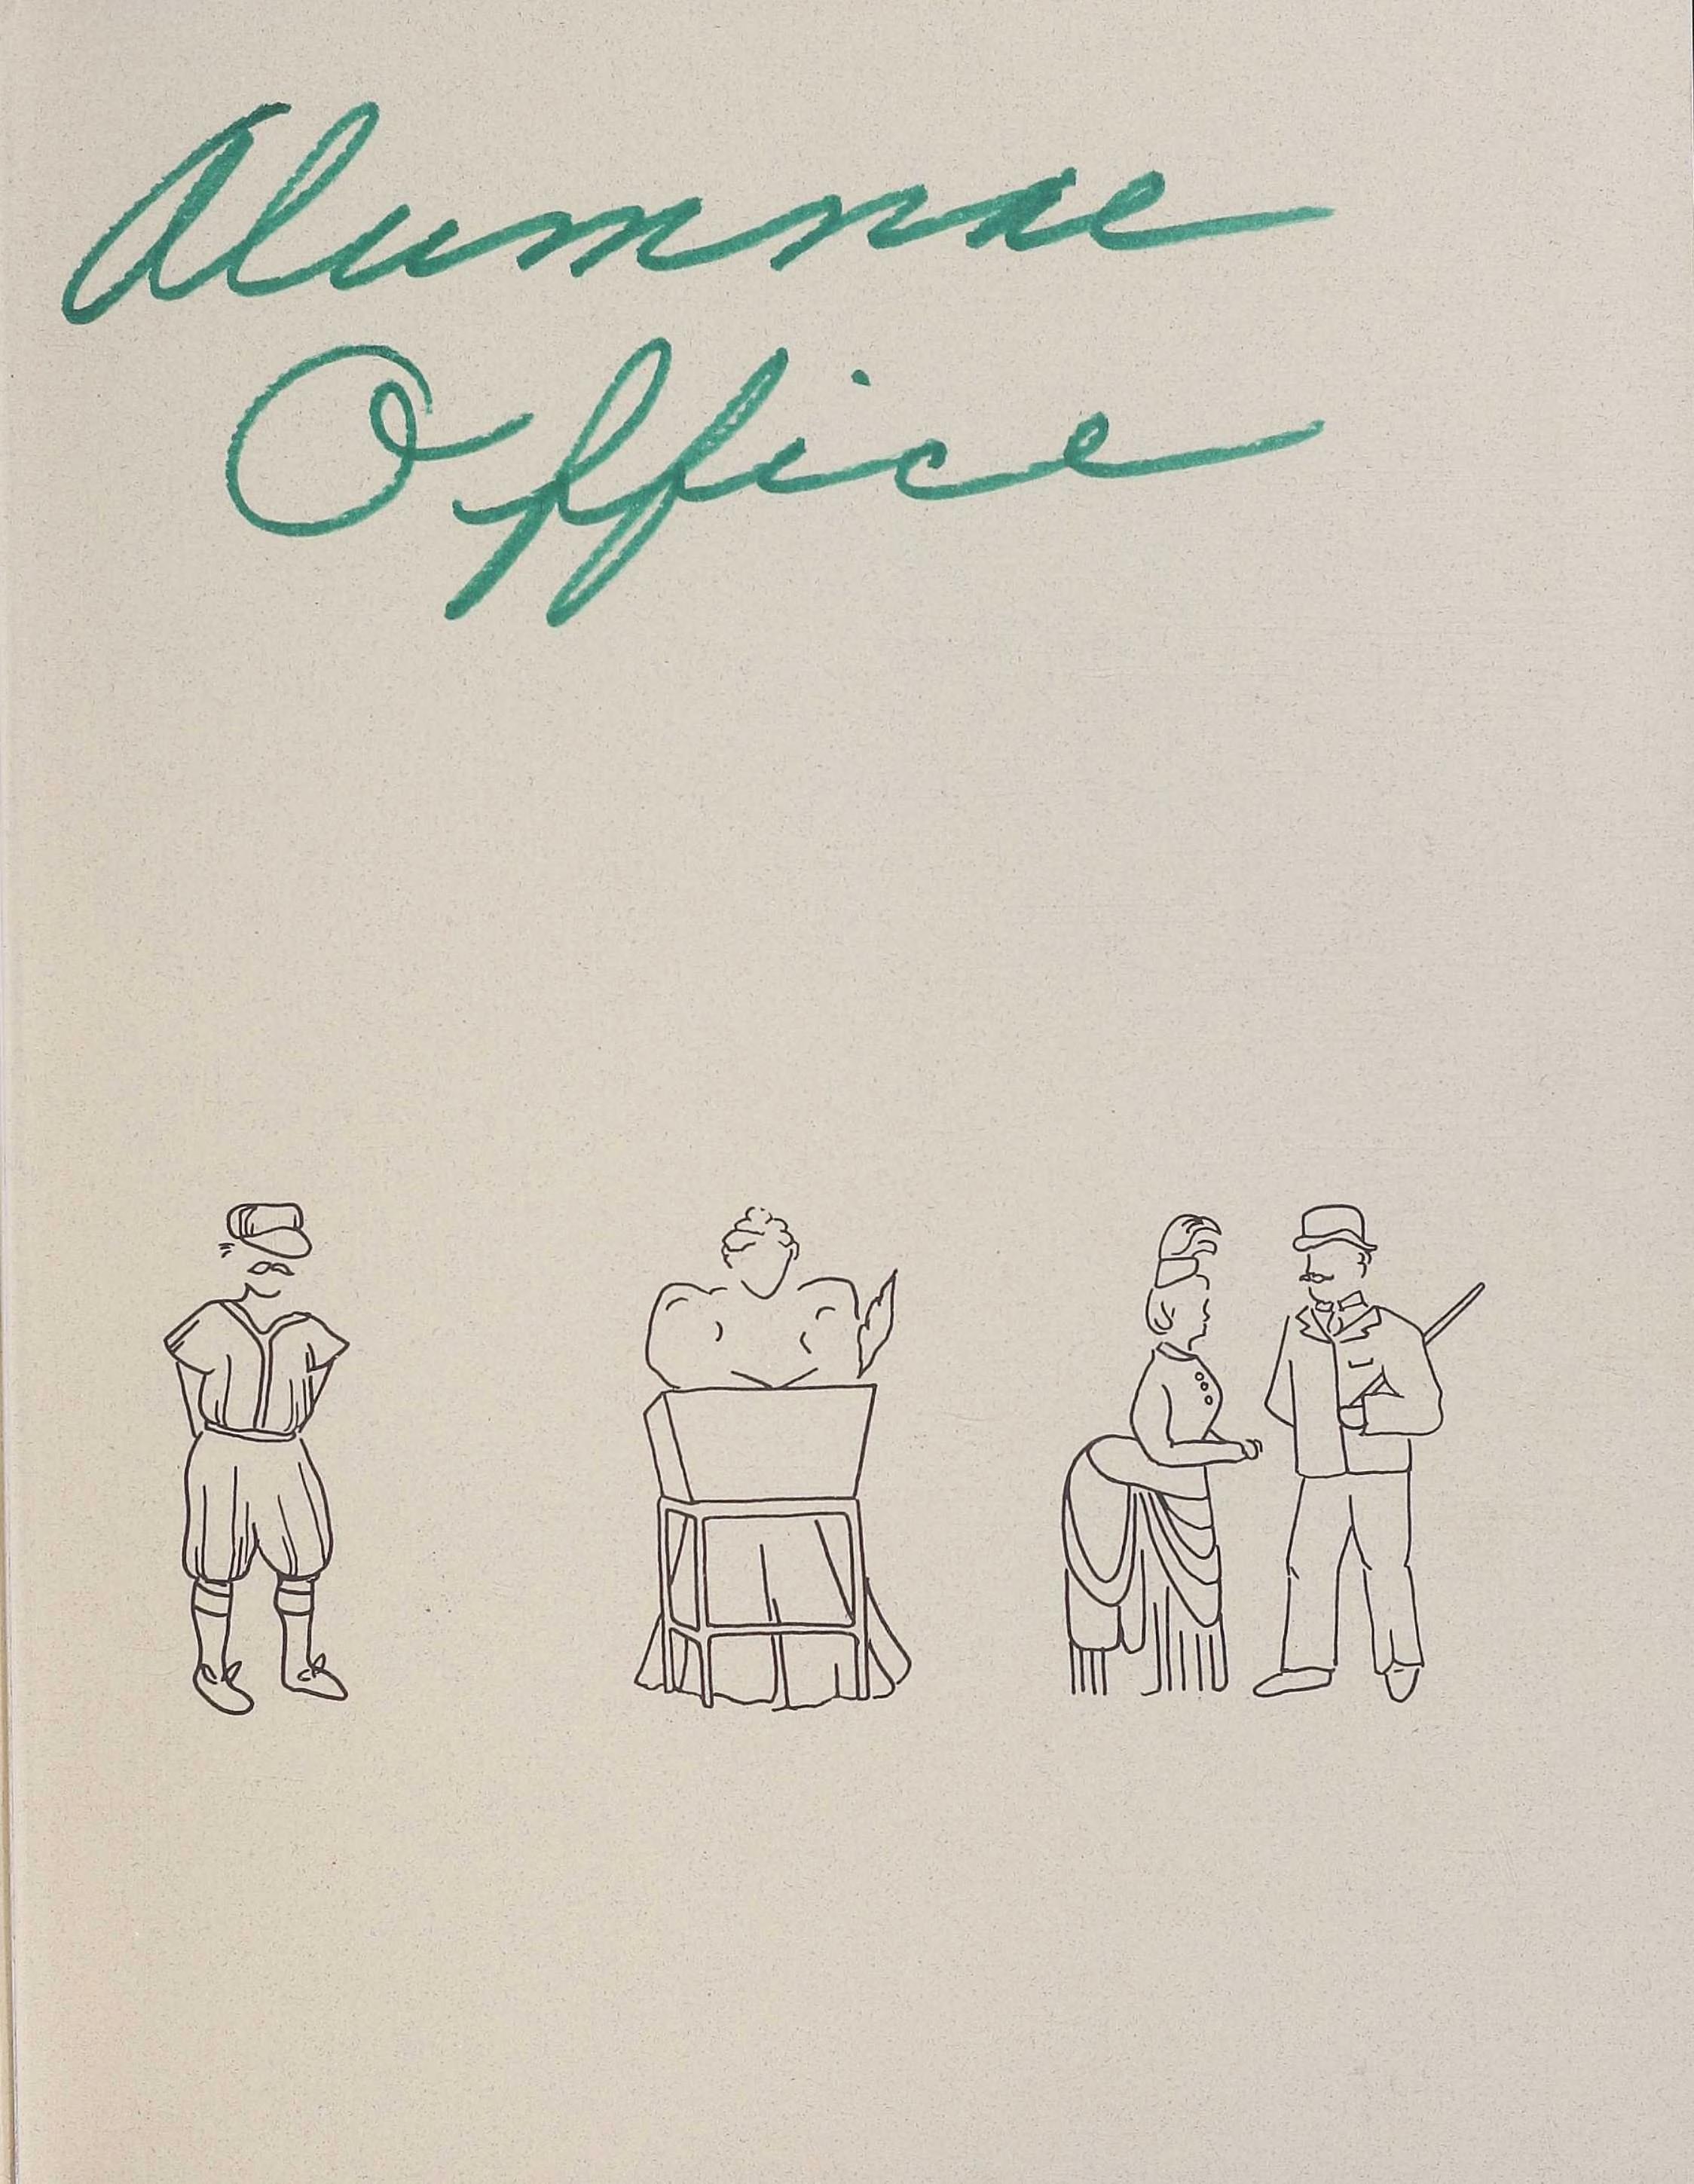 Alumnae
Office